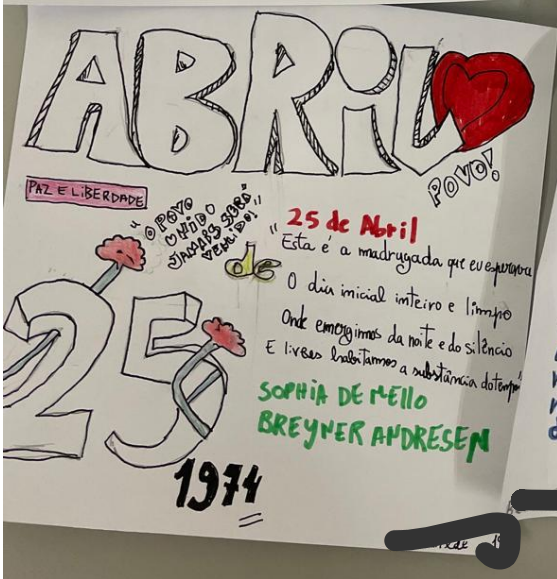 ABRIL
POVO!
PAZ E LIBERDADE
"O POVO
UNIDO
JAMAIS SERÁ
VENCIDO!"
25 de
"25 de Abril
Esta é a madrugada que eu esperava
O dia inicial inteiro e limpo
Onde emergimos da noite e do silêncio
E livres habitamos a substância do tempo"
SOPHIA DE MELLO
BREYNER ANDRESEN
1974